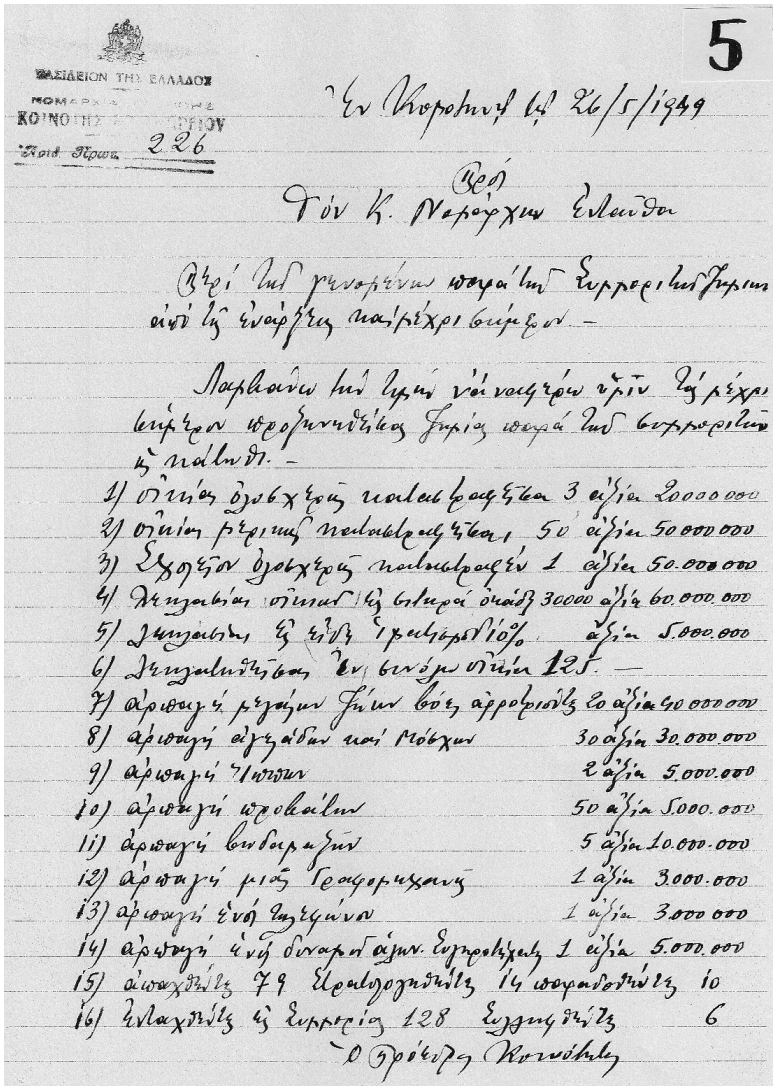 5
ΒΑΣΙΛΕΙΟΝ ΤΗΣ ΕΛΛΑΔΟΣ
ΚΟΙΝΟΤΗΣ
Ἀριθ. Πρωτ. 226
Ἐν Κομοτηνῇ τῇ 26/5/1949
Πρός
Τόν Κ. Νομάρχην Ἐνταῦθα
Περί τῆς γενομένης παρά τῶν Συμμοριτῶν ζημίας
ἀπό τῆς ἐνάρξεως καί μέχρι σήμερον. –
Λαμβάνω τήν τιμήν νά ἀναφέρω ὑμῖν τάς μέχρι
σήμερον προξενηθείσας ζημίας παρά τῶν συμμοριτῶν
ὡς κάτωθι. –
1) οἰκίας ὁλοσχερῶς καταστραφείσας 3 ἀξία 20000000
2) οἰκίας μερικῶς καταστραφείσας, 50 ἀξία 50000000
3) Σχολεῖον ὁλοσχερῶς καταστραφέν 1 ἀξία 50.000.000
4) Λεηλασίας οἰκιῶν εἰς σιτηρά ὀκάδ. 30000 ἀξία 60.000.000
5) Λεηλασίας εἰς εἴδη ἱματισμοῦ 10% ἀξία 5.000.000
6) Λεηλατηθείσας ἐν συνόλῳ οἰκίαι 125. –
7) ἁρπαγή μεγάλων ζώων βόες ἀρροτριῶντες 20 ἀξία 40.000000
8) ἁρπαγή ἀγελάδων καί Μόσχων 30 ἀξία 30.000.000
9) ἁρπαγή Ἵππων 2 ἀξία 5.000.000
10) ἁρπαγή προβάτων 50 ἀξία 5.000.000
11) ἁρπαγή 5 ἀξία 10.000.000
12) ἁρπαγή μιᾶς Γραφομηχανῆς 1 ἀξία 3.000.000
13) ἁρπαγή ἑνός τηλεφώνου 1 ἀξία 3.000.000
14) ἁρπαγή ἑνός 1 ἀξία 5.000.000
15) ἀπαχθέντες 79 Στρατολογηθέντες 14 παραδοθέντες 10
16) Ἐνταχθέντες εἰς Συμμορίας 128 Συλληφθέντες 6
Ὁ Πρόεδρος Κοινότητος